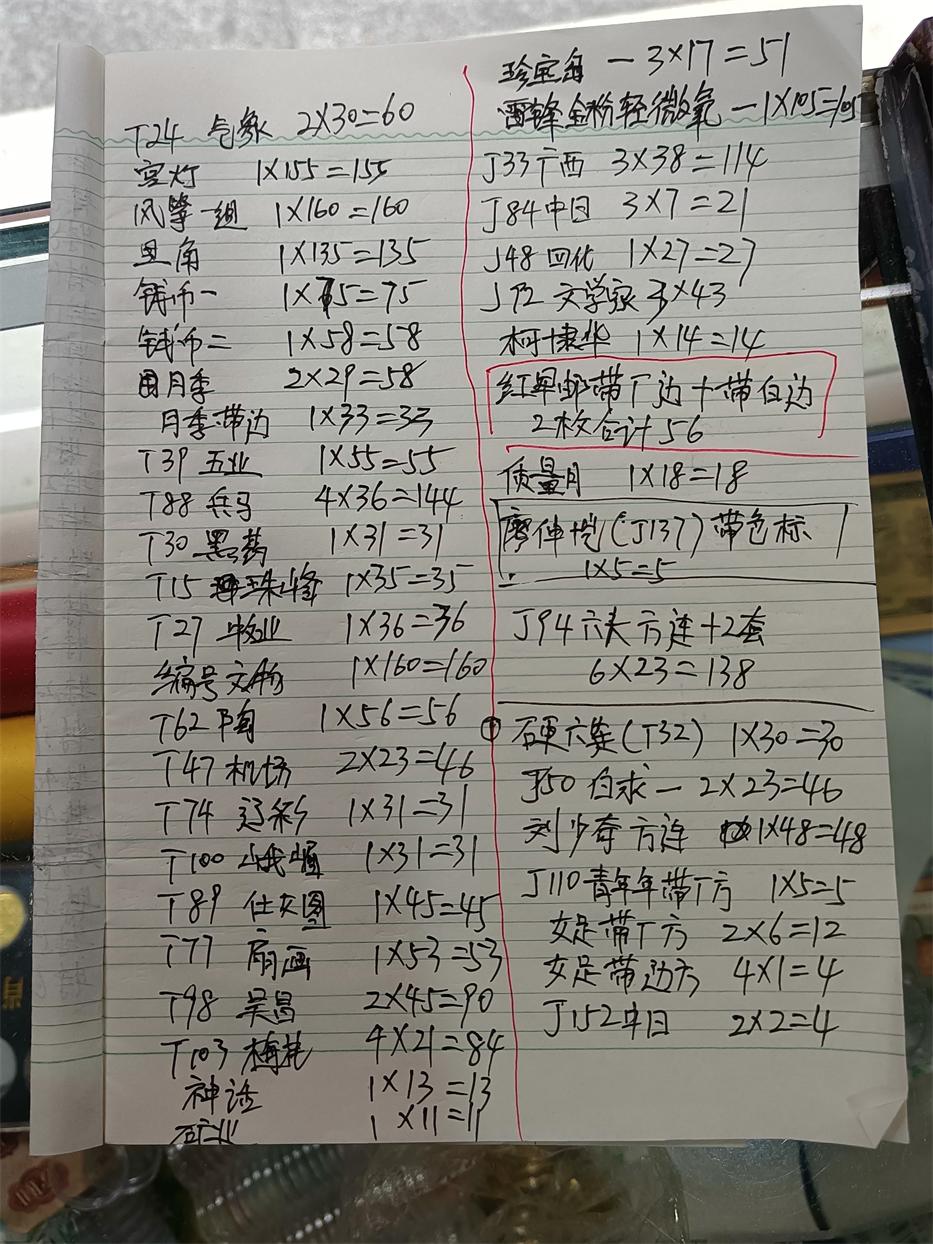 T24 气象 2×30=60
宫灯 1×155=155
风筝一组 1×160=160
里角 1×135=135
钱币一 1×75=75
钱币二 1×58=58
月季 2×29=58
月季带边 1×33=33
T39 五业 1×55=55
T88 兵马 4×36=144
T30 黑药 1×31=31
T15 珠峰 1×35=35
T27 牧业 1×36=36
编号文物 1×160=160
T62 陶 1×56=56
T47 机场 2×23=46
T74 辽彩 1×31=31
T100 峨嵋 1×31=31
T89 仕女图 1×45=45
T77 扇画 1×53=53
T98 吴昌 2×45=90
T103 梅花 4×21=84
神话 1×13=13
矿业 1×11=11
珍宝岛一 3×17=51
雷锋金粉轻微氧一 1×105=105
J33 广西 3×38=114
J84 中日 3×7=21
J48 四化 1×27=27
J92 文学家 ×43
柯棣华 1×14=14
红军邮带厂边+带白边
2枚合计56
质量月 1×18=18
廖仲恺(J137)带色标
1×5=5
J94 六头方连+2套
6×23=138
硬六套(T32) 1×30=30
J50 白求一 2×23=46
刘少奇方连 1×48=48
J110 青年年带厂方 1×5=5
女足带厂方 2×6=12
女足带边方 4×1=4
J152 中日 2×2=4